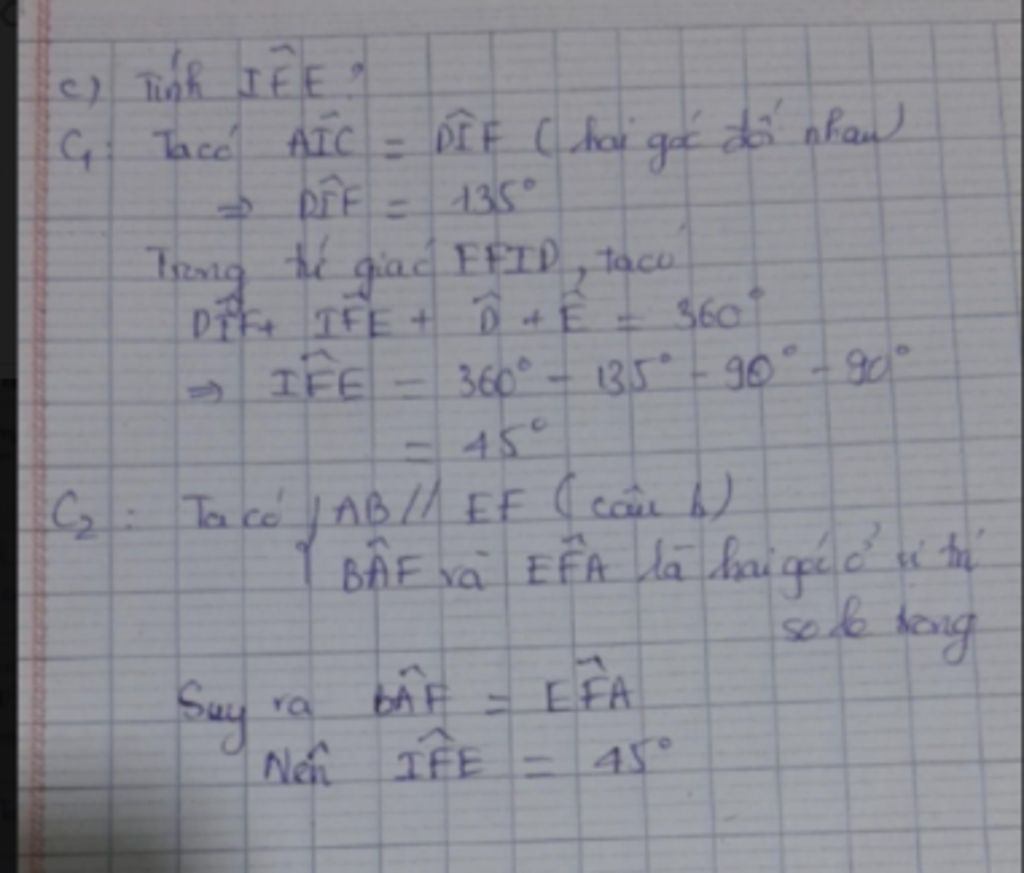 c) Tính IF̂E?
C₁: Ta có AÎC = DÎF (hai góc đối nhau)
⇒ DÎF = 135°
Trong tứ giác EFID, ta có
DÎF + IF̂E + D̂ + Ê = 360°
⇒ IF̂E = 360° - 135° - 90° - 90°
= 45°
C₂: Ta có { AB // EF (câu b)
BÂF và EF̂A là hai góc ở vị trí
so le trong
Suy ra BÂF = EF̂A
Nên IF̂E = 45°